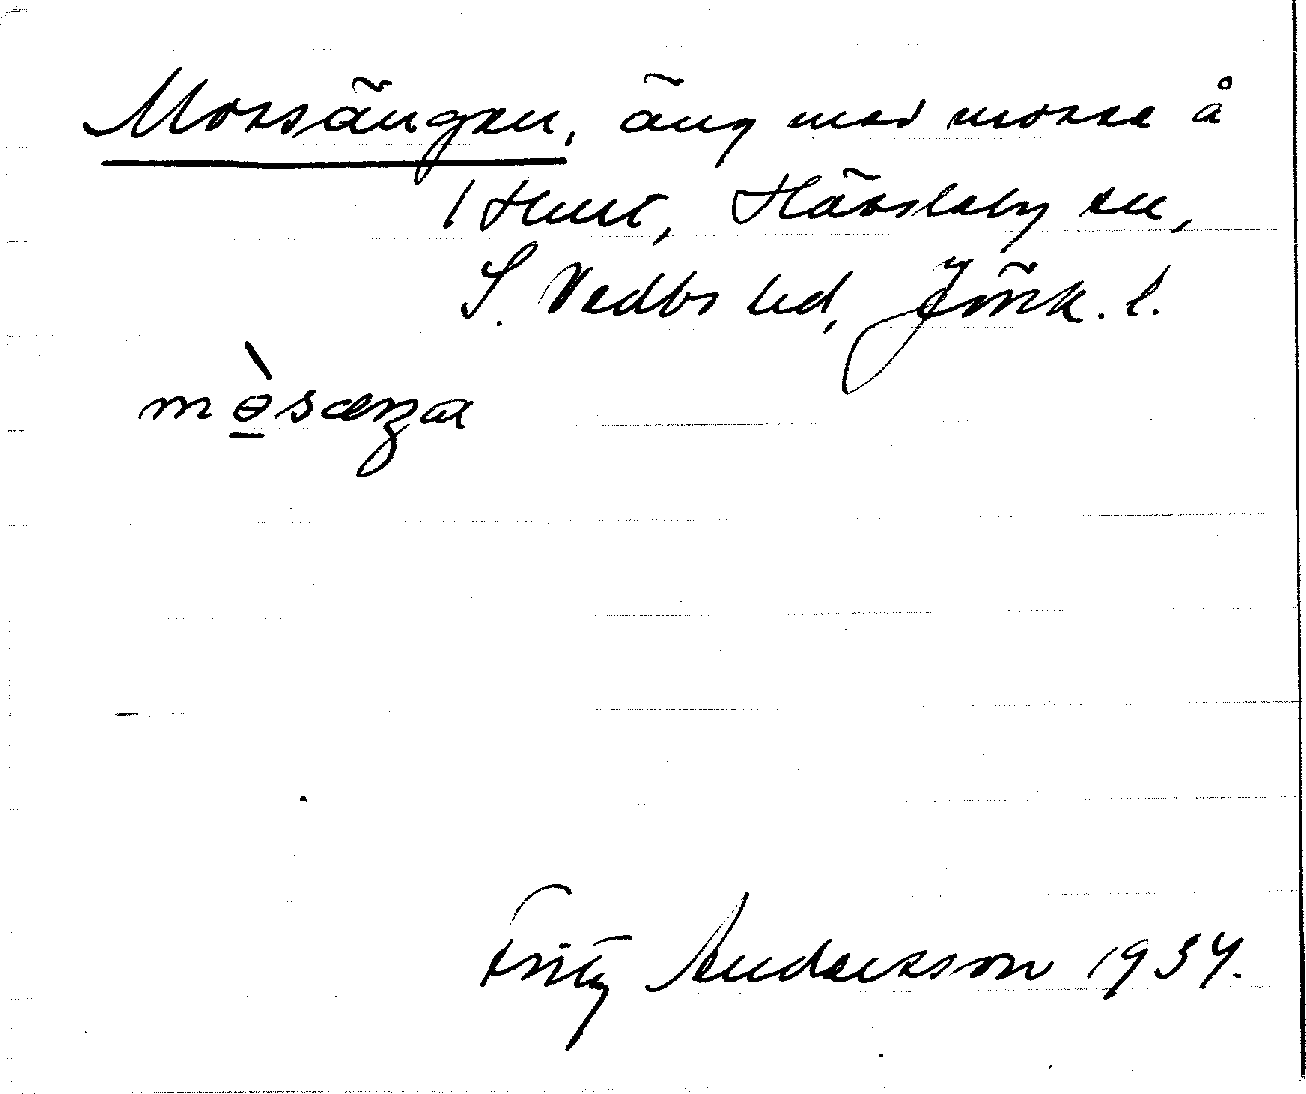 Mossängen, äng med mosse å
1 Hult, Hässleby sn,
S. Vedbo hd, Jönk. l.
mɵ̀sæŋa
Fritz Andersson 1934.